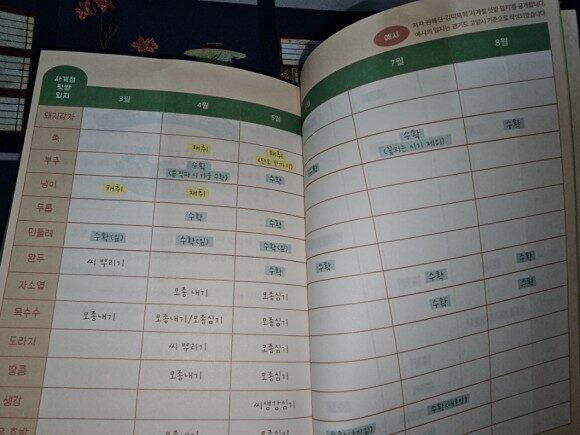 예시
저자 권혜진·김미옥의 '사계절 텃밭 일지'를 공개합니다.
예시의 일지는 경기도 고양시 기준으로 작성되었습니다.
사계절
텃밭
일지
3월 4월 5월 7월 8월
돼지감자
쑥 채취 채취
(단오 전까지)
수확
(꽃피는 시기 제외)
수확
부추 수확
수확 수확
냉이 채취 채취
두릅 수확 수확
민들레 수확(잎) 수확(잎) 수확(잎)
완두 씨 뿌리기 수확 수확
자소엽 모종 내기 모종심기 수확 수확
옥수수 모종내기 모종내기/모종심기 모종심기 수확 수확
도라지 씨 뿌리기 모종심기
땅콩 모종내기 모종심기
생강 씨생강심기
호박